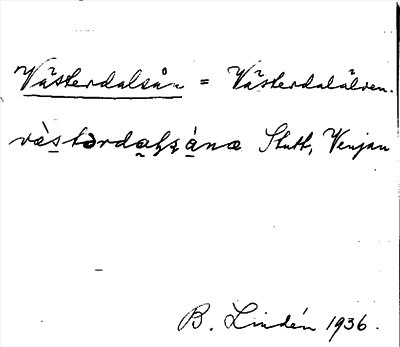 Västerdalsån = Västerdalälven.
Stutt, Venjan
B. Lindén 1936.